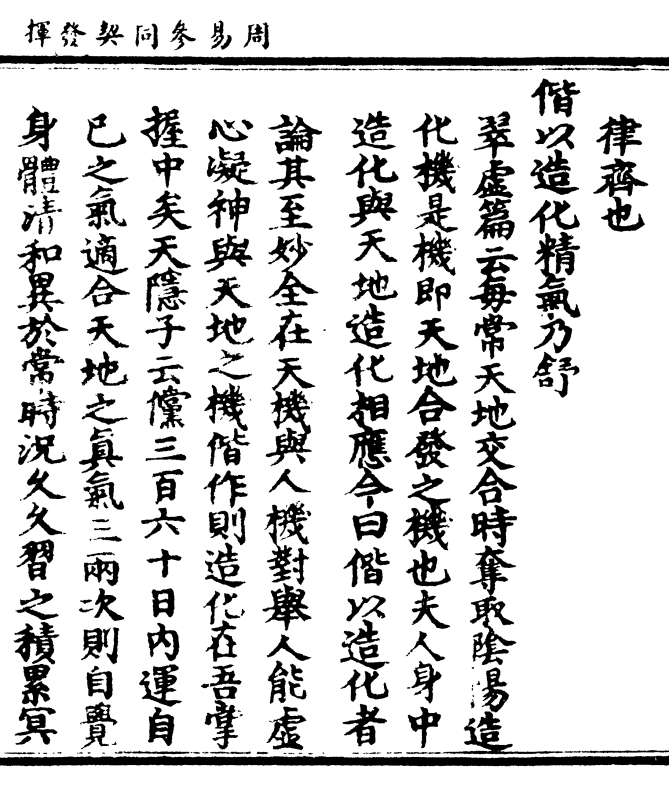 周易參同契發揮
律齊也
偕以造化精氣乃舒
翠虛篇云每常天地交合時奪取陰陽造
化機是機即天地合發之機也夫人身中
造化與天地造化相應今曰偕以造化者
論其至妙全在天機與人機對舉人能虛
心凝神與天地之機偕作則造化在吾掌
握中矣天隱子云儻三百六十日內運自
己之氣適合天地之真氣三兩次則自覺
身體清和異於常時況久久習之積累冥